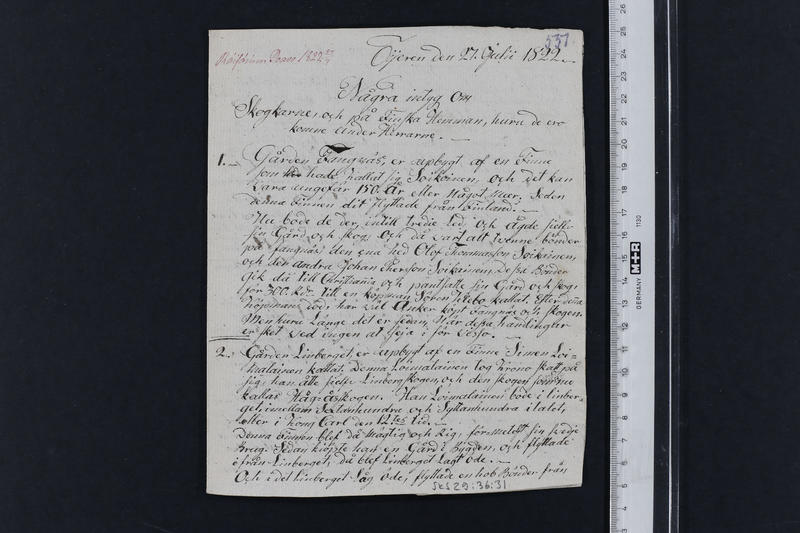 557
Tyeren den 27. Julii 1822.
Några intyg Om
Skogkarne, och på Finska Hemman, huru de ero
komne under Herrarne.
1. Gården Fangnäs, er upbygt af en Finne
som hade kallat sig Soikainen, och det kan
vara ungefär 150. År eller något mer, Seden
denna Finnen dit flyttade från Finland.
Nu bode de der intill tredie led, Och ägde sielfv
sin Gård och skog, Och då vart alt tvenne bönder
på Fangnäs, den ena hed Olof Thommasson Soikainen,
och den andra Johan Persson Soikainen, Dessa Bönder
gik då till Christiania och pantsatte sin Gård och skog,
för 300. Rdr. till en Kopman Sören kallat. Efter denna
kopmans död, har väl Anker köpt Fangnäs och skogen.
Men huru Länge det er sedan, När dessa handlingar
er sket ved ingen at seja i för visso.
2. Gården Linberget, er upbygt af en Finne Simen Loi=
malainen kallat. Denna Loimalainen tog Krono skatt på
sig, han åtte sielfv Linbergskogen, och den skogen som nu
kallas Hågåsskogen. Han Loimalainen bode i Linber-
get, imellan Sextanhundra och Syttanhundra i talet,
eller i Kong Carl den 12tes tid.
Denna Finnen blef då Mägtig och Rig, för melett sin svedje
Brug. Sedan köpte han en Gård i Bygden, och flyttade
ifrån Linberget, Då blef Linberget Lagt öde.
Och i det Linberget Låg öde, flyttade en hob Bönder från
SKS 29:36:31
GERMANY M+R 1130